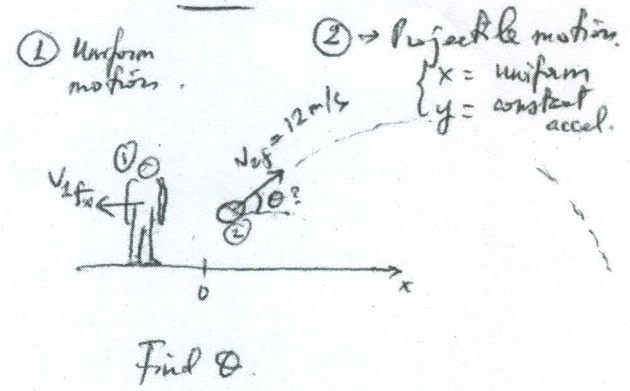 ① Uniform
motion.
② → Projectile motion.
x = uniform
y = constant
accel.
V1fx
①
V2f = 12 m/s
θ?
②
0
x
Find θ.